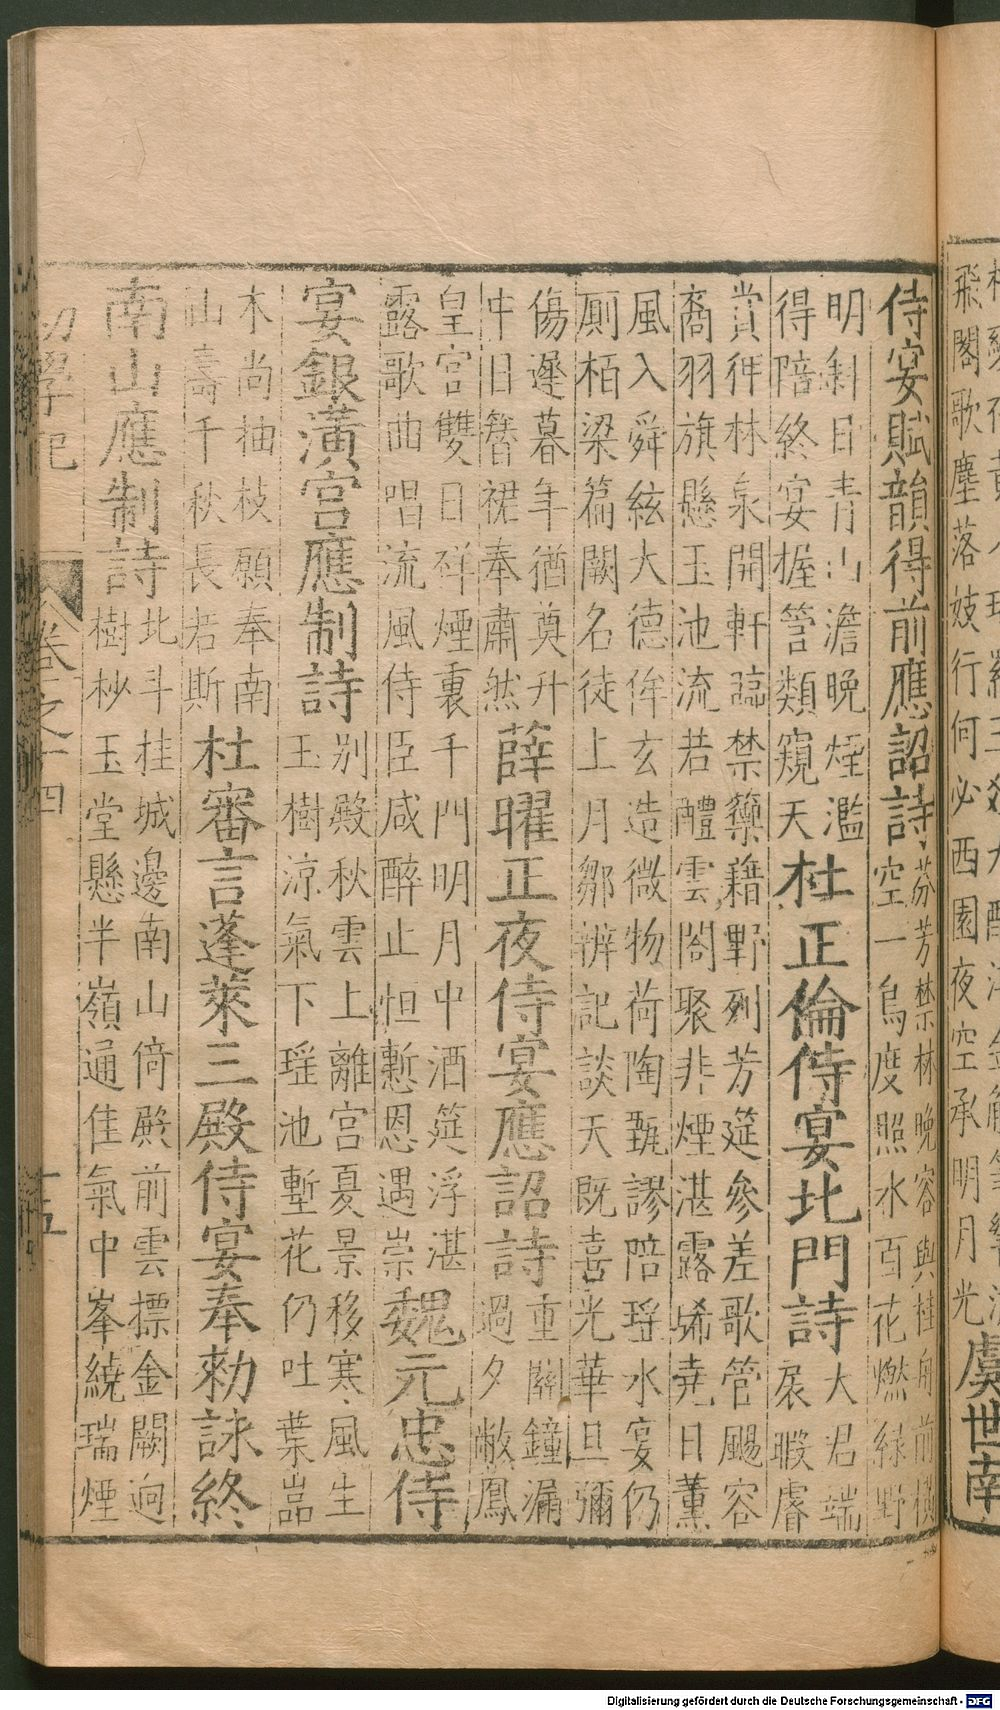 飛閣歌塵落妓行何必西園夜空承明月光虞世南
侍宴賦韻得前應詔詩
芬芳禁林晚容與桂舟前橫
空一鳥度照水百花燃綠野
明斜日青山澹晚煙濫
得陪終宴握管類窺天
杜正倫侍宴北門詩
大君端
扆暇睿
賞狎林泉開軒臨禁籞藉野列芳筵參差歌管颺容
裔羽旗懸玉池流若醴雲閣聚非煙湛露晞堯日薰
風入舜絃大德侔玄造微物荷陶甄謬陪瑤水宴仍
厠栢梁篇闕名徒上月鄒辨記談天既喜光華旦彌
傷遲暮年猶奠升
中旧簪裾奉肅然
薛曜正夜侍宴應詔詩
重關鐘漏
過夕敞鳳
皇宮雙日祥煙裏千門明月中酒筵浮湛
露歌曲唱流風侍臣咸醉止恒慙恩遇崇
魏元忠侍
宴銀潢宮應制詩
別殿秋雲上離宮夏景移寒風生
玉樹涼氣下瑤池塹花仍吐葉嵓
木尚抽枝願奉南
山壽千秋長若斯
杜審言蓬萊三殿侍宴奉勑詠終
南山應制詩
北斗桂城邊南山倚殿前雲標金闕迥
樹杪玉堂懸半嶺通佳氣中峯繞瑞煙
初學記
卷之十四
十五
Digitalisierung gefördert durch die Deutsche Forschungsgemeinschaft - DFG